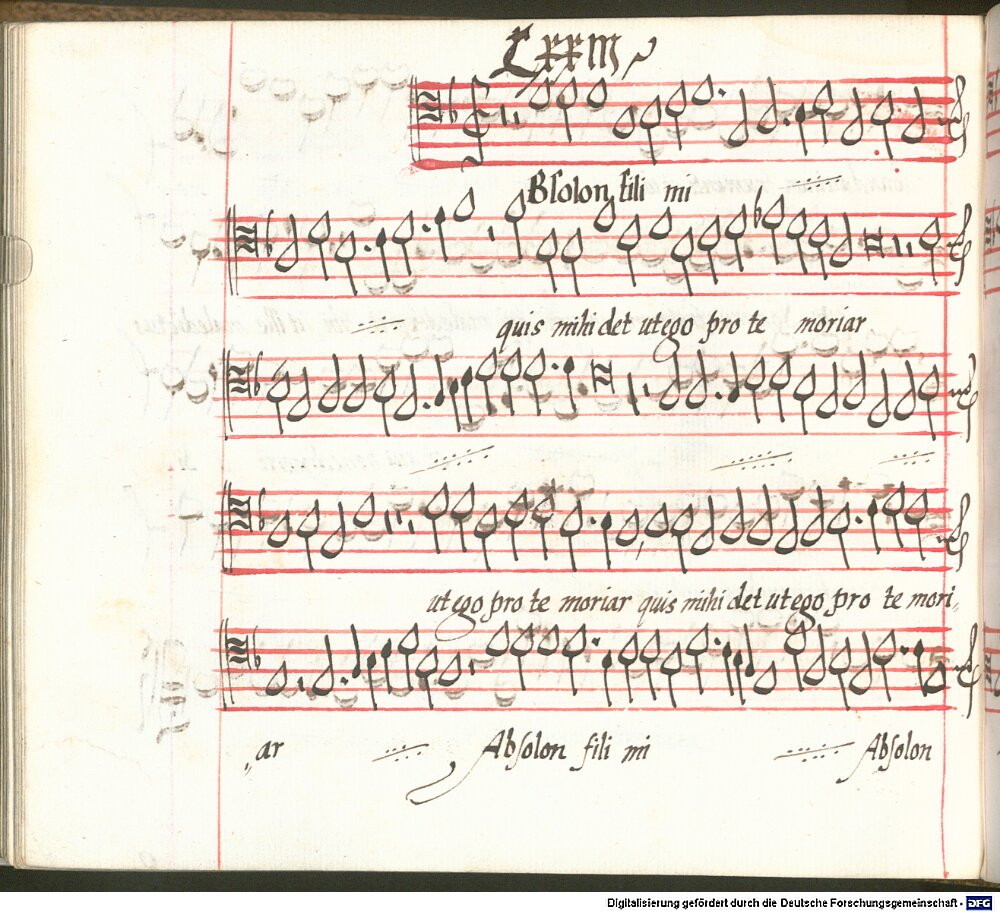 Lxxiij
Bsolon fili mi
quis mihi det ut ego pro te moriar
ut ego pro te moriar quis mihi det ut ego pro te mori„
„ar Absolon fili mi Absolon
Digitalisierung gefördert durch die Deutsche Forschungsgemeinschaft - DFG